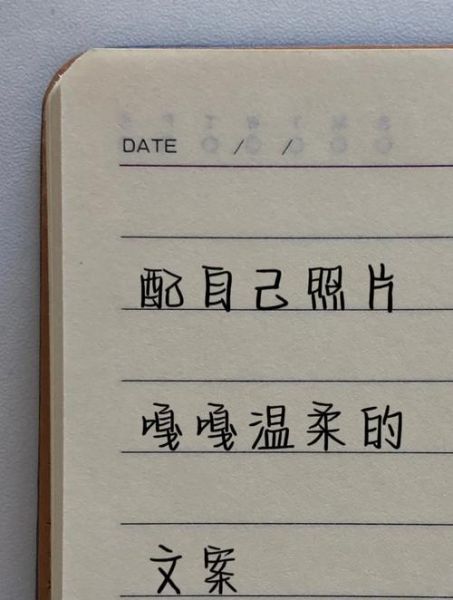 DATE / /
配自己照片
嘎嘎温柔的
文案